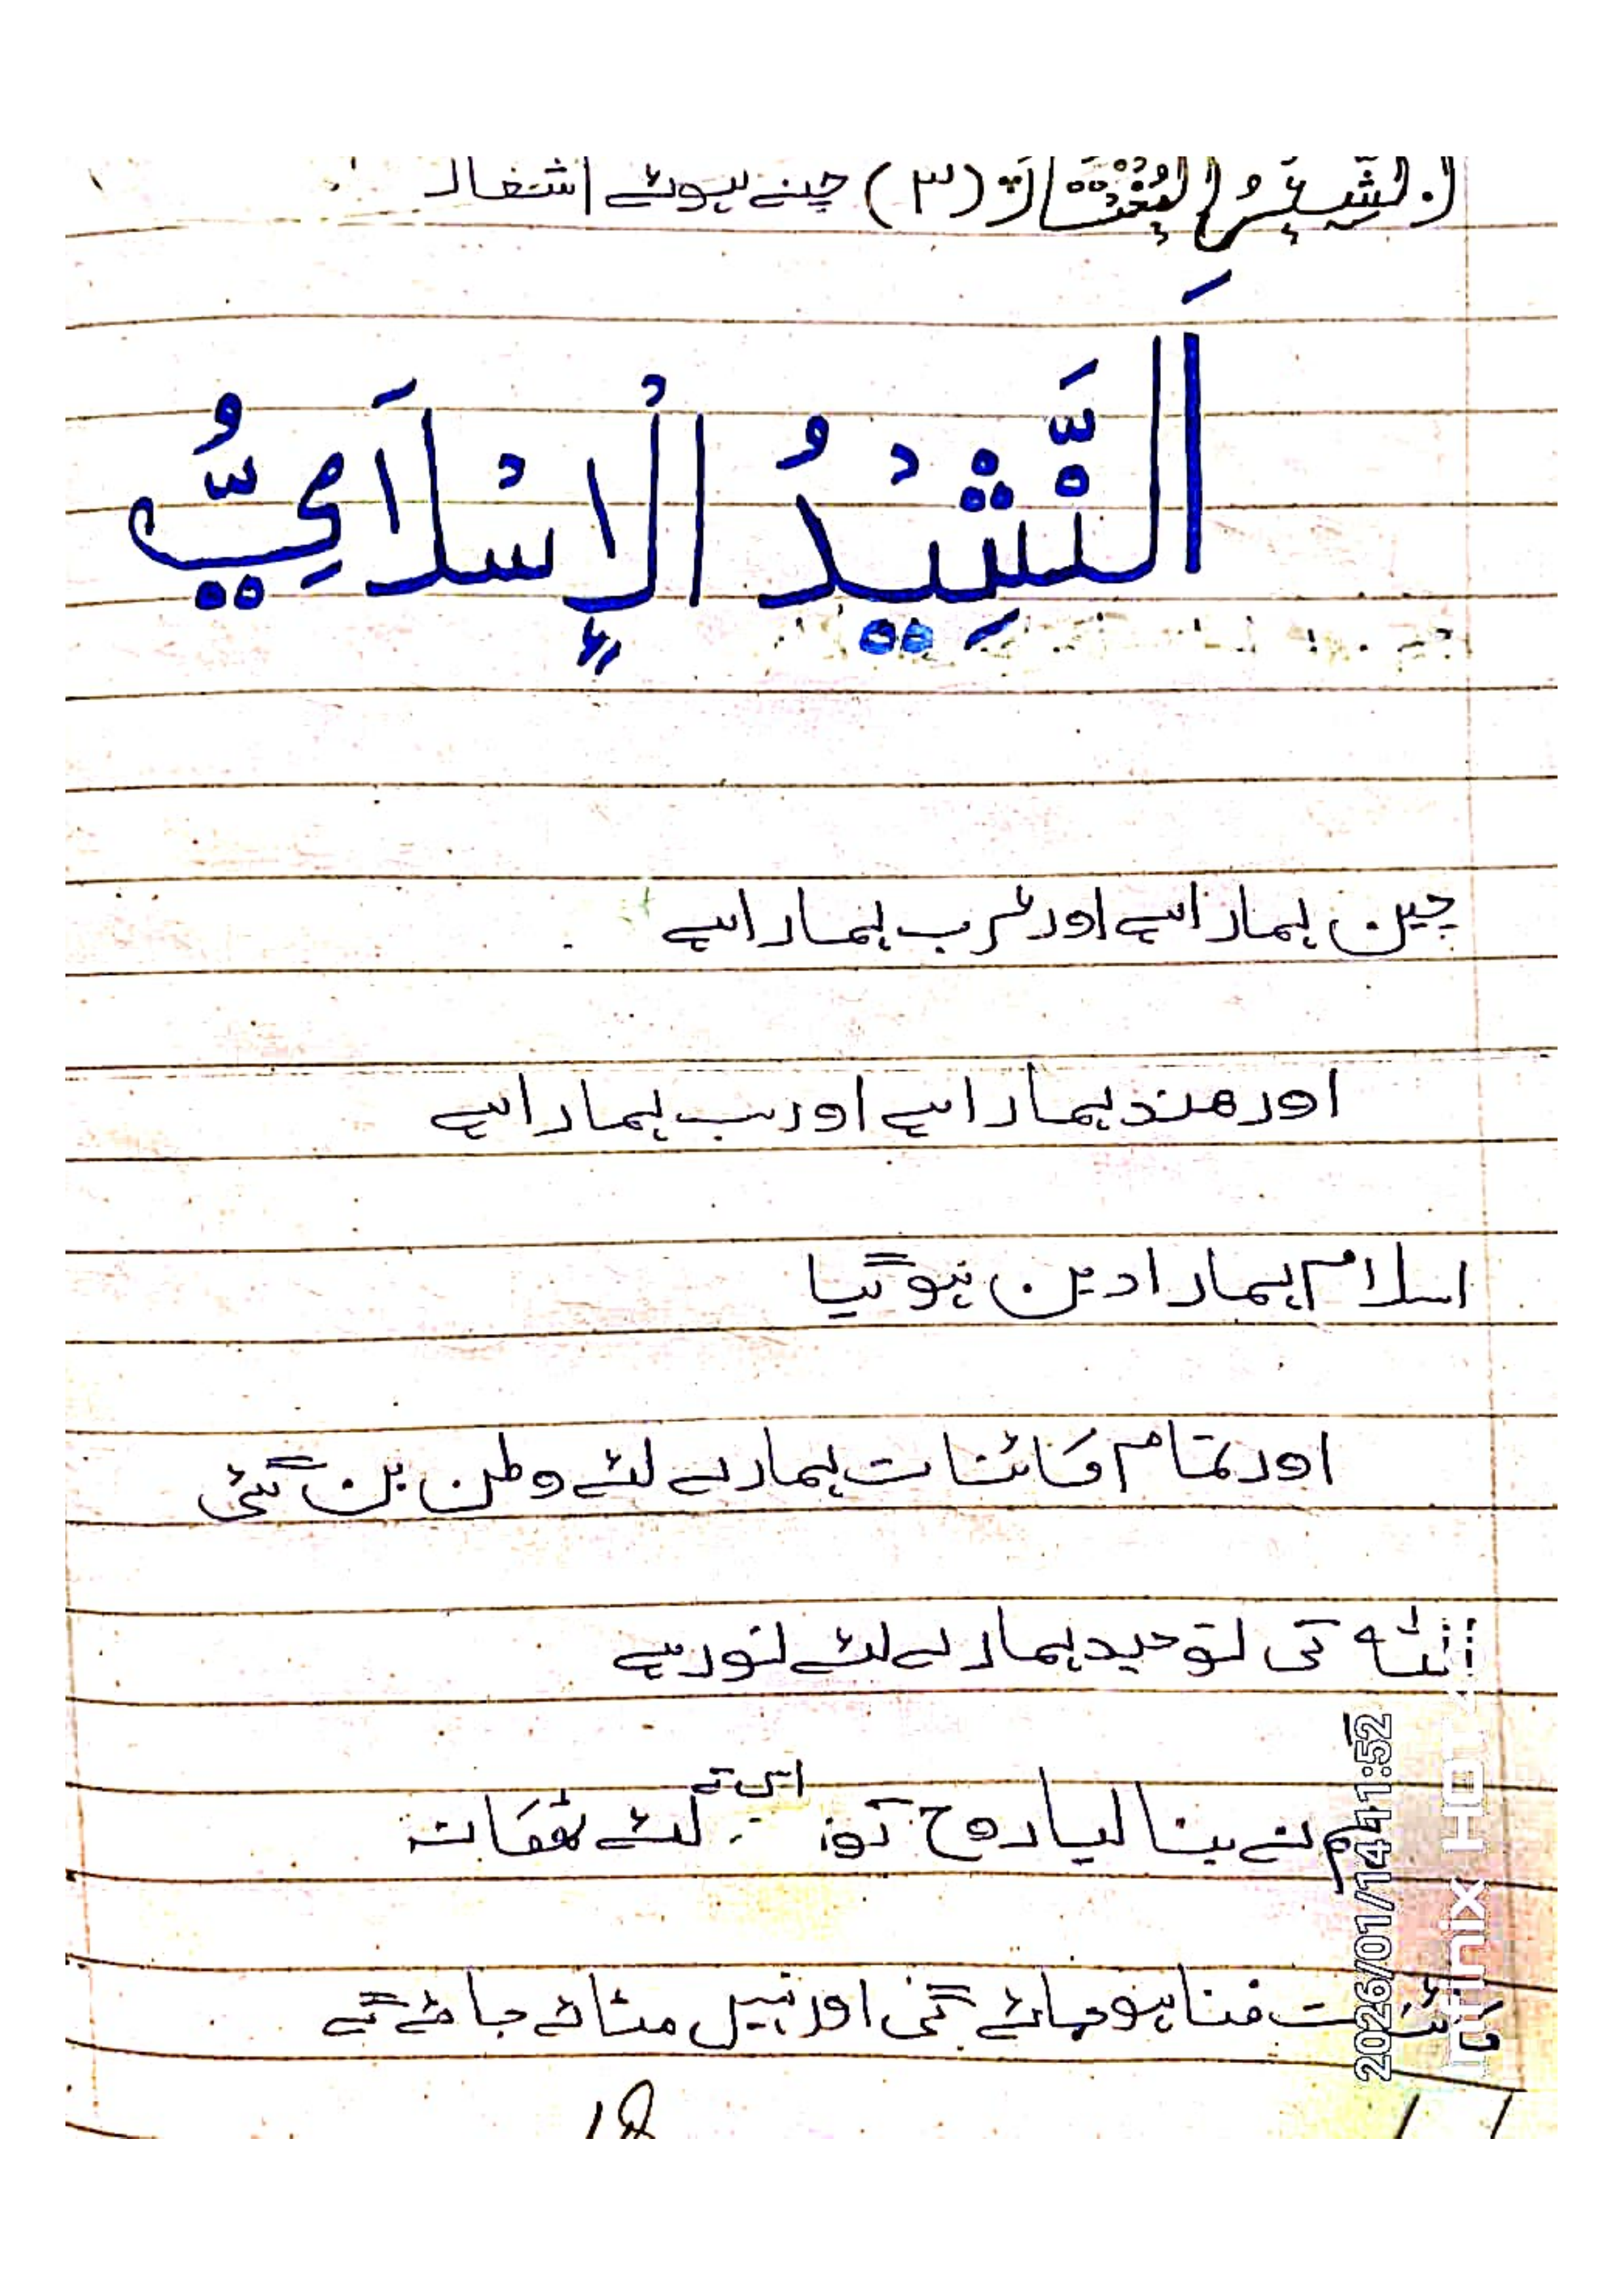 الشِّعْرُ الْمُخْتَارُ (٣) چنے ہوئے اشعار
اَلنَّشِيْدُ الْإِسْلَامِيُّ
چین ہمارا ہے اور عرب ہمارا ہے
اور ھند ہمارا ہے اور سب ہمارا ہے
اسلام ہمارا دین ہوگیا
اور تمام کائنات ہمارے لئے وطن بن گئی
اللہ کی توحید ہمارے لئے نور ہے
ہم نے بنا لیا روح کو اس کے لئے ٹھکانہ
کائنات فنا ہو جائے گی اور نہیں مٹائے جائے گے
2026/01/14 11:52
Infinix HOT